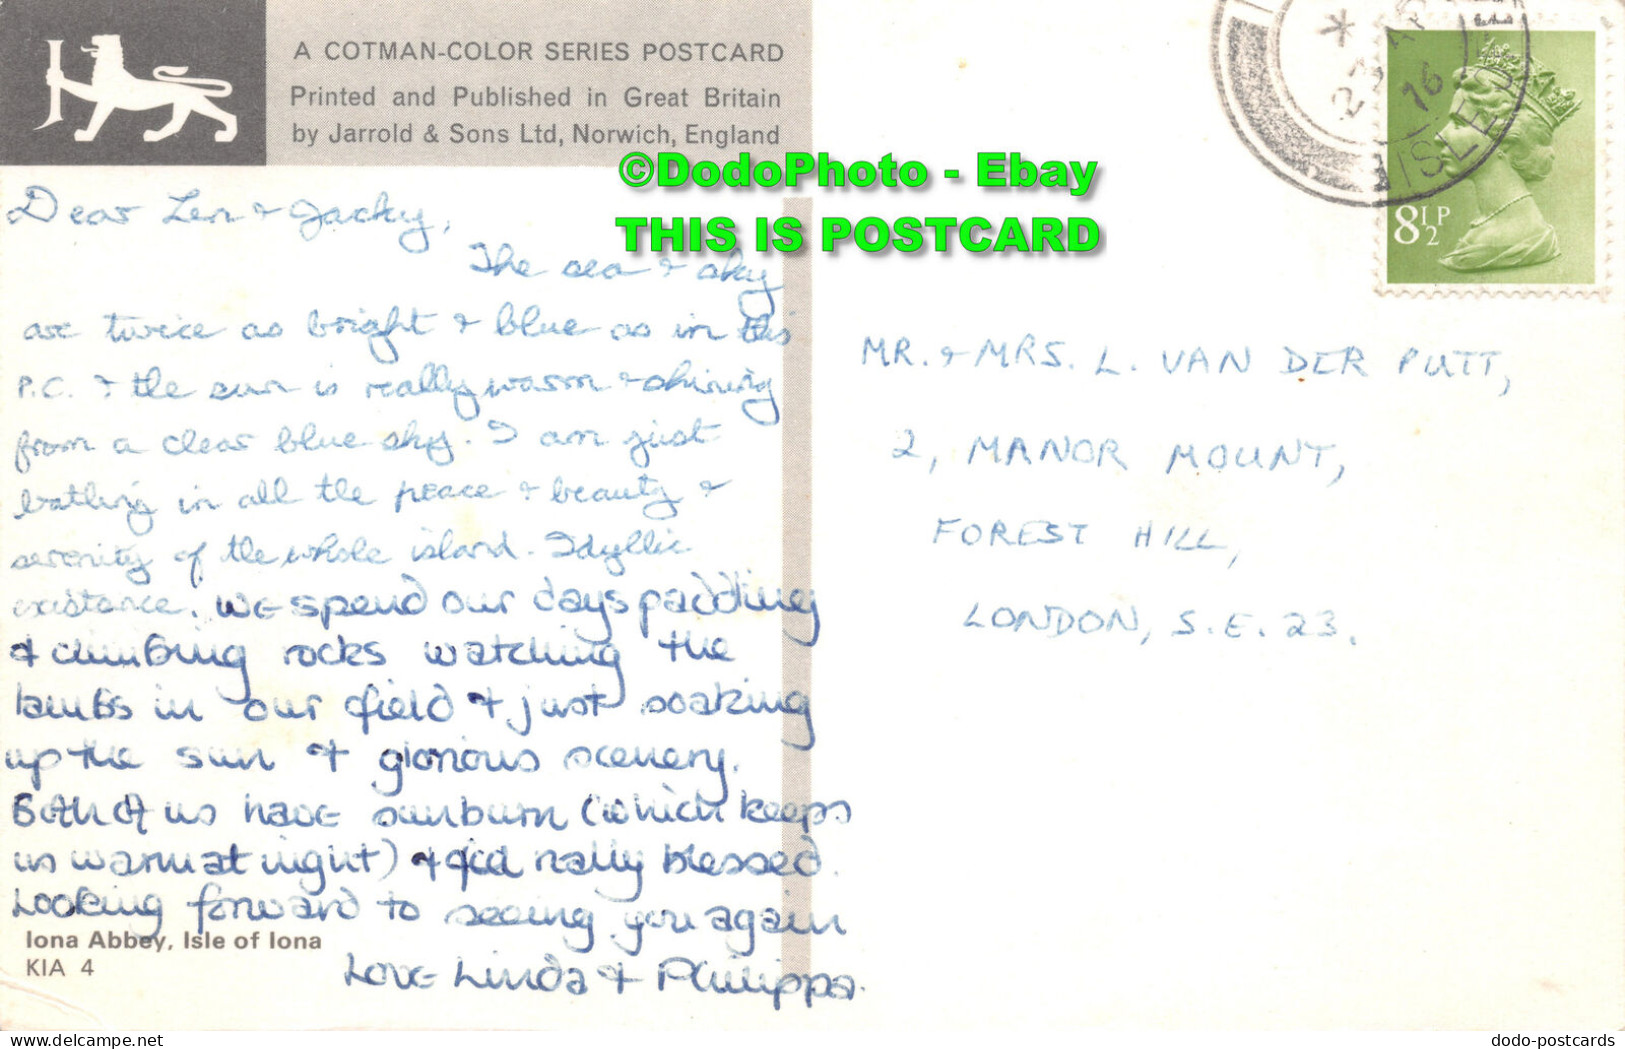 A COTMAN-COLOR SERIES POSTCARD
Printed and Published in Great Britain
by Jarrold & Sons Ltd, Norwich, England
©DodoPhoto - Ebay
THIS IS POSTCARD
8½P
ISLE
Dear Len & Jacky,
The sea & sky
are twice as bright & blue as in this
P.C. & the sun is really warm & shining
from a clear blue sky. I am just
bathing in all the peace & beauty &
serenity of the whole island. Idyllic
existence. We spend our days paddling
& climbing rocks watching the
lambs in our field & just soaking
up the sun & glorious scenery.
Both of us have sunburn (which keeps
us warm at night) & feel really blessed.
Looking forward to seeing you again
Love Linda & Philippa.
Iona Abbey, Isle of Iona
KIA 4
MR. & MRS. L. VAN DER PUTT,
2, MANOR MOUNT,
FOREST HILL,
LONDON, S.E. 23.
dodo-postcards
Delcampe.net